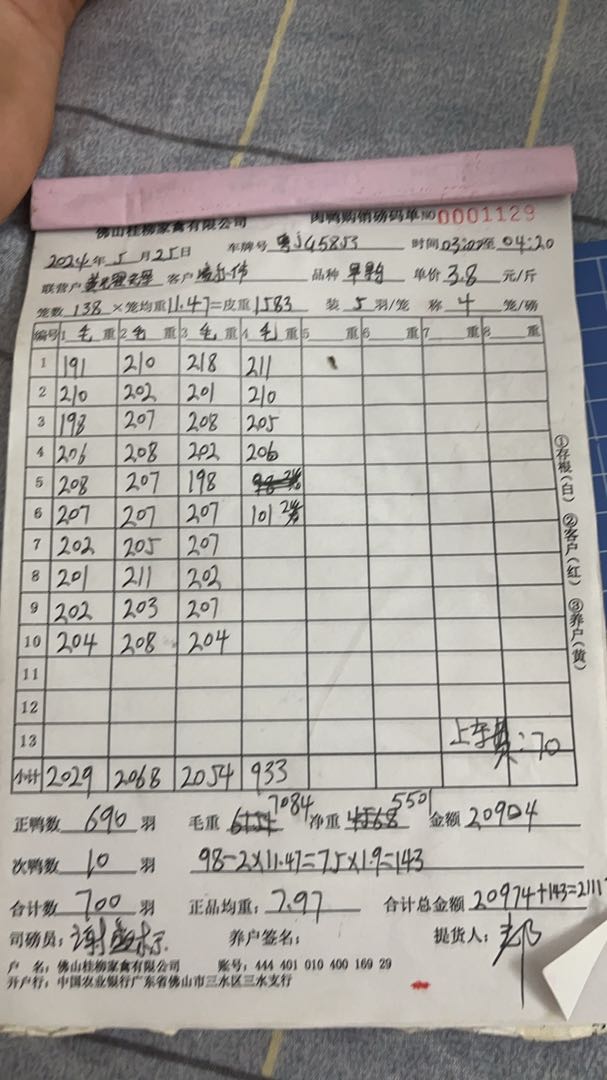 佛山桂柳家禽有限公司 肉鸭购销磅码单 NO 0001129
2024年5月25日 车牌号 粤J45853 时间 03:00至 04:20
联营户 客户 品种 单价 3.8 元/斤
笼数 138 ×笼均重 11.47=皮重 1583 装 5 羽/笼 称 4 笼/磅
编号 1 毛 重 2 毛 重 3 毛 重 4 毛 重 5 重 6 重 7 重 8 重
1 191 210 218 211
2 210 202 201 210
3 198 207 208 205
4 206 208 202 206
5 208 207 198
6 207 207 207 101
7 202 205 207
8 201 211 202
9 202 203 207
10 204 208 204
11
12
13 上车费:70
小计 2029 2068 2054 933
①存根(白) ②客户(红) ③养户(黄)
正鸭数 690 羽 毛重 7084 净重 5501 金额 20904
次鸭数 10 羽 98-2×11.47=75×1.9=143
合计数 700 羽 正品均重: 7.97 合计总金额 20974+143=2111
司磅员: 养户签名: 提货人:
户 名: 佛山桂柳家禽有限公司 账号: 444 401 010 400 169 29
开户行: 中国农业银行广东省佛山市三水区三水支行